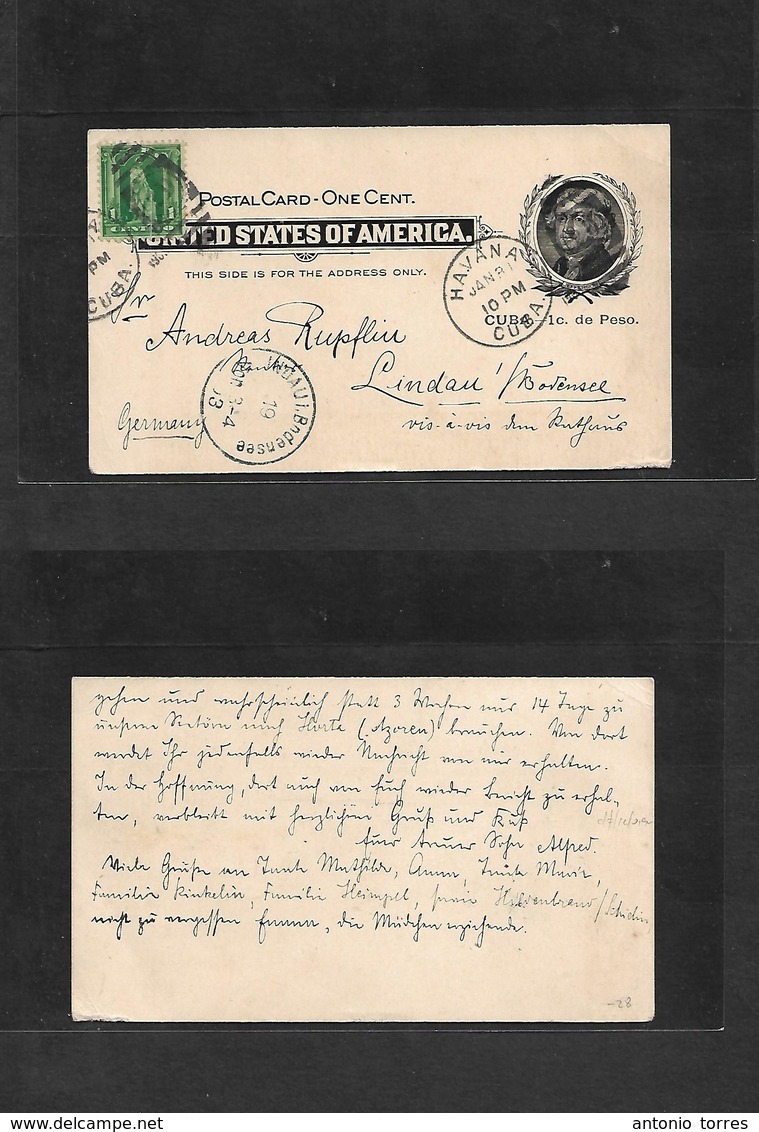 POSTAL CARD - ONE CENT.
UNITED STATES OF AMERICA.
THIS SIDE IS FOR THE ADDRESS ONLY.
1 CENT 1
PM
CUBA.
HAVANA
JAN 31
10 PM
CUBA.
CUBA 1c. de Peso.
Andreas Rupflin
Lindau i/Bodensee
Germany
vis-à-vis dem Rathaus
LINDAU i. Bodensee
19
3-4
03
gehen und wahrscheinlich statt 3 Wochen nur 14 Tage zu
unserer Retoure nach Horta (Azoren) brauchen. Von dort
werdet Ihr jedenfalls wieder Nachricht von mir erhalten.
In der Hoffnung, dort auch von Euch wieder Bericht zu erhal-
ten, verbleibt mit herzlichem Gruß und Kuß
Euer treuer Sohn Alfred.
Viele Grüße an Tante Mathilde, Anna, Tante Marie,
Familie Kinkelin, Familie Heimpel, sowie Hildenbrand /
nicht zu vergessen Emma, die Mädchen erziehende.
-28
antonio torres